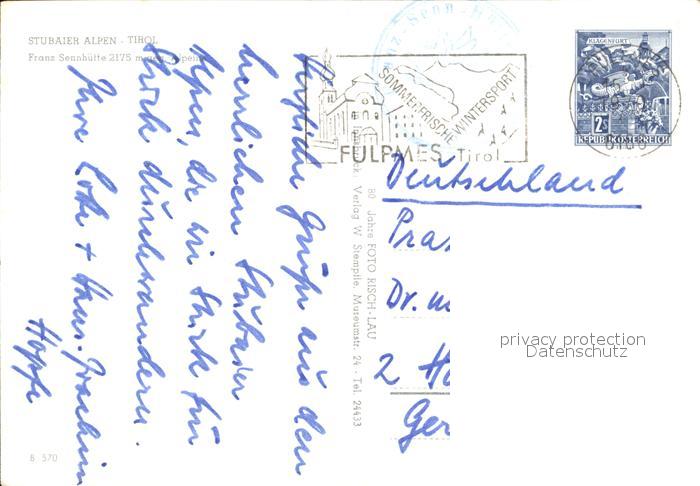 STUBAIER ALPEN - TIROL
Franz Sennhütte 2175 m
Herzliche Grüße aus den
herrlichen Stubaier
Alpen, die wir Stück für
Stück durchwandern.
Ihre Lote + Hans-Joachim
Hoppe
B 570
80 Jahre FOTO RISCH-LAU
Verlag W. Stempfle, Museumstr. 24 - Tel. 24433
Franz-Senn-Hütte
SOMMERFRISCHE WINTERSPORT
FULPMES Tirol
KLAGENFURT
2S
REPUBLIK ÖSTERREICH
Deutschland
Pra
Dr. m
2 Ha
Ger
privacy protection
Datenschutz